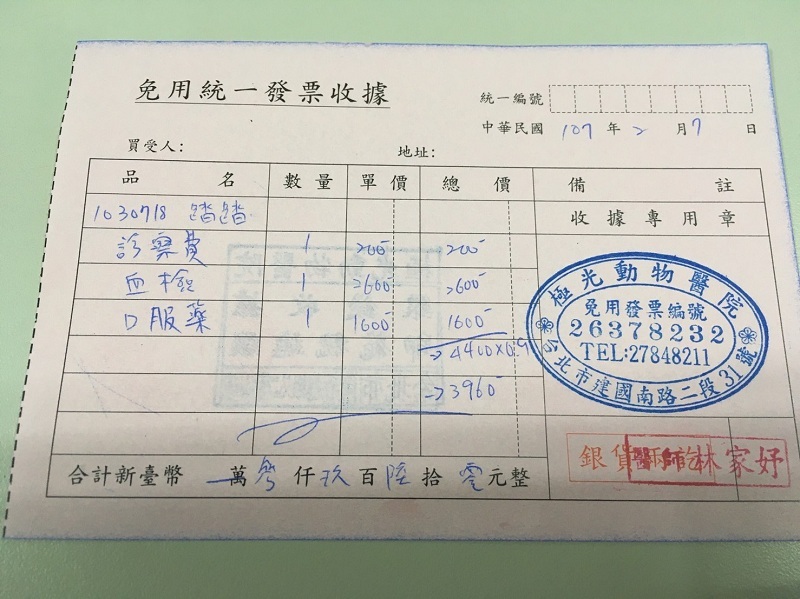 免用統一發票收據
統一編號
中華民國 107 年 2 月 7 日
買受人: 地址:
品名 數量 單價 總價 備註
1030718 踏踏 收據專用章
診察費 1 200 200
血檢 1 2600 2600
口服藥 1 1600 1600
→4400×0.9
→3960
極光動物醫院
免用發票編號
26378232
TEL:27848211
台北市建國南路二段31號
銀貨兩訖
醫師林家妤
合計新臺幣 萬 仟玖百陸拾零元整